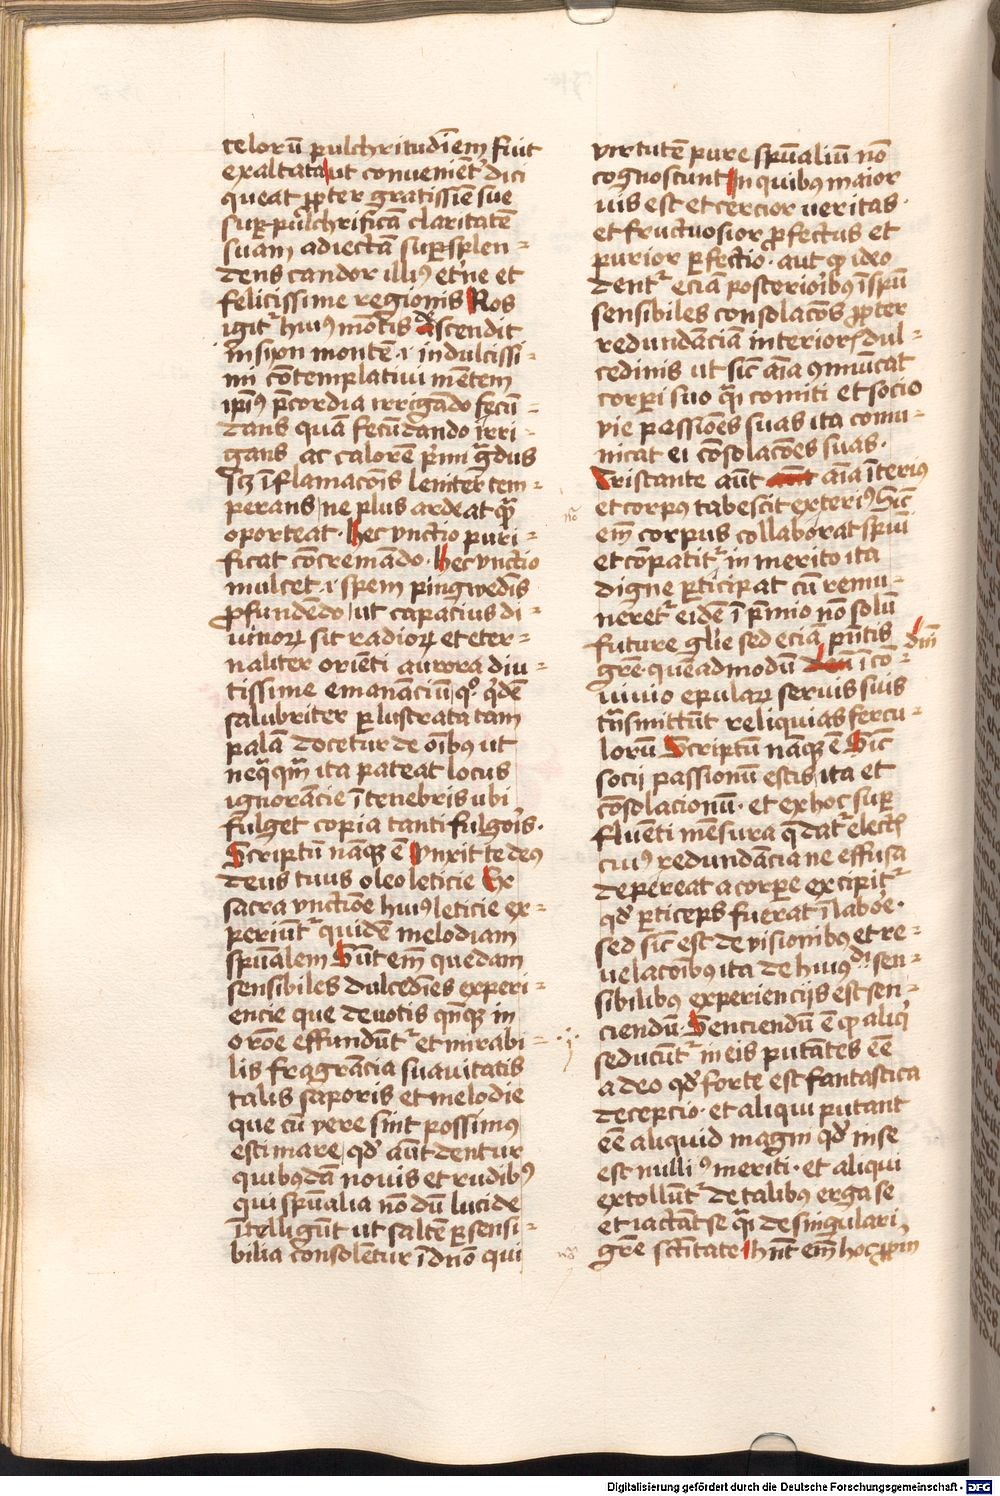 telorū pulchritudīem fuit
exaltata ut convenient͛ dici
queat ꝓpter gratissīe sue
suꝑ pulchrificā claritatē
suam adiectā suꝑsplen-
dens candor illiꝰ et͛ne et
felicissime regionis Ros
igit᷑ huiꝰ mōtis descendit
in syon montē ⁊ in dulcissi-
mi cōtemplativi mētem
ip̄iꝰ p̄cordia irrigādo fecū-
dans quā fecūdando irri-
gans ac calorē ꝑ mi gͣdus
scꝫ īflamacōīs leniter tem-
perans ne plus ardeat qͣ
oporteat. hec vnctio puri-
ficat cōcremando. hec vnctio
mulcet ⁊ spem pingwedīs
ꝓfundēdo ut capacius di-
uinoꝝ sit radioꝝ et eter-
naliter oriēti aurora diu-
tissime emananciū qͦ qͥdē
salubriter ꝑlustrata tam
palā docetur de oībus ut
neqͣqͣm ita pateat locus
ignorancie ī tenebris ubi
fulget copia tanti fulgoīs.
Scriptū nāqꝫ ē Vnxit te deꝰ
deus tuus oleo leticie Ex
sacra vnctiōe huiꝰ leticie ex-
periūt᷑ quidē melodiam
spūalem Sūt em̄ quedam
sensibiles dulcedīes experi-
encie que deuotis qn̄qꝫ in
orōe effundūt᷑ et mirabi-
lis fragrācia suauitatis
talis saporis et melodie
que cū vere sint possimꝰ
estimare qd̛ aūt dentur
quibꝰdā nouis et rudibꝰ
qui spūalia nō dū lucide
ītelligūt ut saltē ꝑ sensi-
bilia consolētur ī dn̄o qui
virtutē pure spūaliū nō
cognoscunt In quibꝰ maior
uis est et cercior ueritas.
et fructuosior ꝓfectus et
purior ꝑfectio. aut qꝫ ideo
dent᷑ eciā posterioībꝰ ī spū
sensibiles consolacōes ꝓpter
redundāciā interiorꝭ dul-
cedinis ut sic aīa ꝯmūicat
corpi suo qͣi comiti et socio
vie passiōes suas ita comu-
nicat ei cōsolacōes suas.
Tristante aūt aīa īteriꝰ
et corpus tabescit exteriꝰ Sic
em̄ corpus collaborat spūi
et cōpatit᷑ in merito ita
digne ꝑticipat cū remu-
neret᷑ eidē ī p̄mio nō solū
future gl̄ie sed eciā p̄ntis
grē quēadmodū dn̄i ī cō-
uiuio epularꝭ seruis suis
trāsmittūt reliquias fercu-
lorū Scriptū nāqꝫ ē Sic
socij passionū estis ita et
cōsolacionū. et ex hoc suꝑ
fluēti mēsura q̄ dat᷑ elect͛
ciuiꝰ redundācia ne effusa
depereat a corpe excipit᷑
qd̛ ꝑticeps fuerat ī laboē.
sed sic est de visionibꝰ et re-
uelacōibꝰ ita de huiꝰdi sen-
sibilibꝰ experiencijs est sen-
ciendū. Senciendū ē qꝫ aliqͥ
seducūt᷑ in eis putātes eē
a deo qd̛ forte est fantastica
decepcio. et aliqui putant
eē aliquid magni qd̛ in se
est nulliꝰ meriti. et aliqui
extollūt᷑ de talibꝰ erga se
et iactāt se qͣi de singulari
grē sc̄titate Hn̄t em̄ hoc ꝓpm
Digitalisierung gefördert durch die Deutsche Forschungsgemeinschaft - DFG